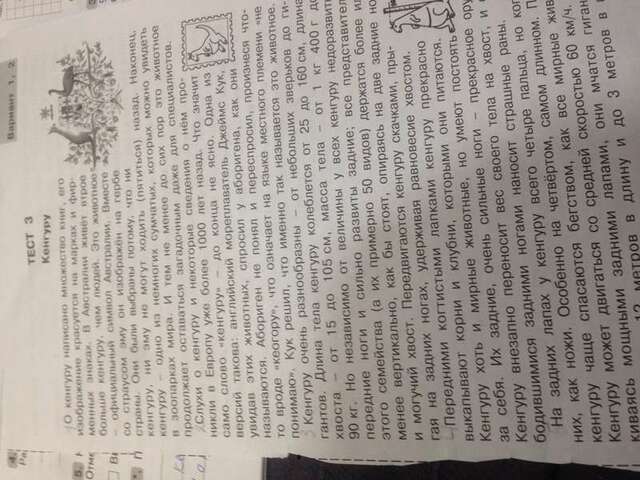 4.
Вариант 1, 2
ТЕСТ 3
Кенгуру
О кенгуру написано множество книг, его
изображение красуется на марках и фир-
менных знаках. В Австралии живёт втрое
больше кенгуру, чем людей. Это животное
– официальный символ Австралии. Вместе
со страусом эму он изображён на гербе
страны. Они были выбраны потому, что ни
кенгуру, ни эму не могут ходить (пятиться) назад. Наконец,
кенгуру – одно из немногих сумчатых, которых можно увидеть
в зоопарках мира. И тем не менее до сих пор это животное
продолжает оставаться загадочным даже для специалистов.
Слухи о кенгуру и некоторые сведения о нём про-
никли в Европу уже более 1000 лет назад. Что значит
само слово «кенгуру» – до конца не ясно. Одна из
версий такова: английский мореплаватель Джеймс Кук,
увидав этих животных, спросил у аборигена, как они
называются. Абориген не понял и переспросил, произнеся что-
то вроде «кеогору», что означает на языке местного племени «не
понимаю». Кук решил, что именно так называется это животное.
Кенгуру очень разнообразны – от небольших зверьков до ги-
гантов. Длина тела кенгуру колеблется от 25 до 160 см, длина
хвоста – от 15 до 105 см, масса тела – от 1 кг 400 г до
90 кг. Но независимо от величины у всех кенгуру недоразвит
передние ноги и сильно развиты задние; все представител
этого семейства (а их примерно 50 видов) держатся более ил
менее вертикально, как бы стоят, опираясь на две задние но
и могучий хвост. Передвигаются кенгуру скачками, пры-
гая на задних ногах, удерживая равновесие хвостом.
Передними когтистыми лапками кенгуру прекрасно
выкапывают корни и клубни, которыми они питаются.
Кенгуру хоть и мирные животные, но умеют постоять
за себя. Их задние, очень сильные ноги – прекрасное ору
Кенгуру внезапно переносит вес своего тела на хвост, и
бодившимися задними ногами наносит страшные раны.
На задних лапах у кенгуру всего четыре пальца, но ког
них, как ножи. Особенно на четвёртом, самом длинном. П
кенгуру чаще спасаются бегством, как все мирные жив
Кенгуру может двигаться со средней скоростью 60 км/ч.
киваясь мощными задними лапами, они мчатся гиган
12 метров в длину и до 3 метров в